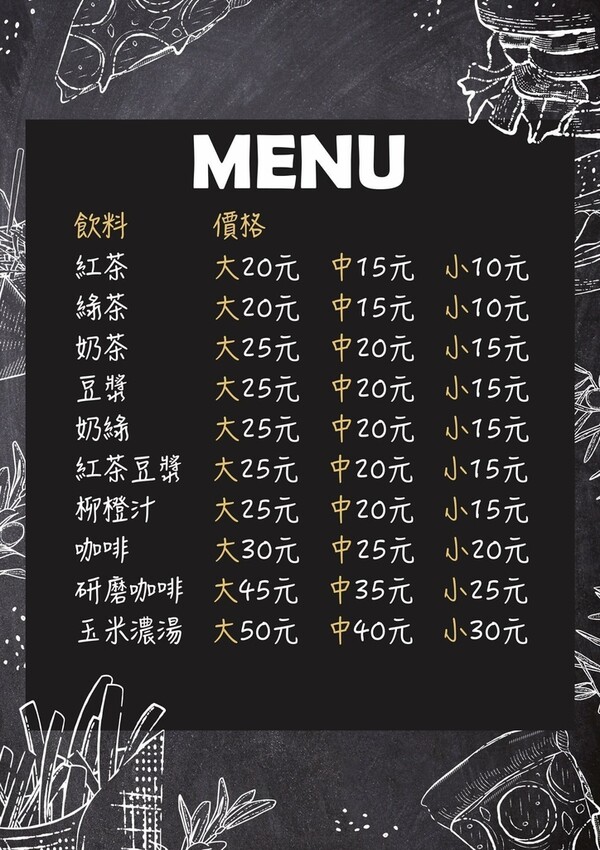 MENU
飲料 價格
紅茶 大20元 中15元 小10元
綠茶 大20元 中15元 小10元
奶茶 大25元 中20元 小15元
豆漿 大25元 中20元 小15元
奶綠 大25元 中20元 小15元
紅茶豆漿 大25元 中20元 小15元
柳橙汁 大25元 中20元 小15元
咖啡 大30元 中25元 小20元
研磨咖啡 大45元 中35元 小25元
玉米濃湯 大50元 中40元 小30元